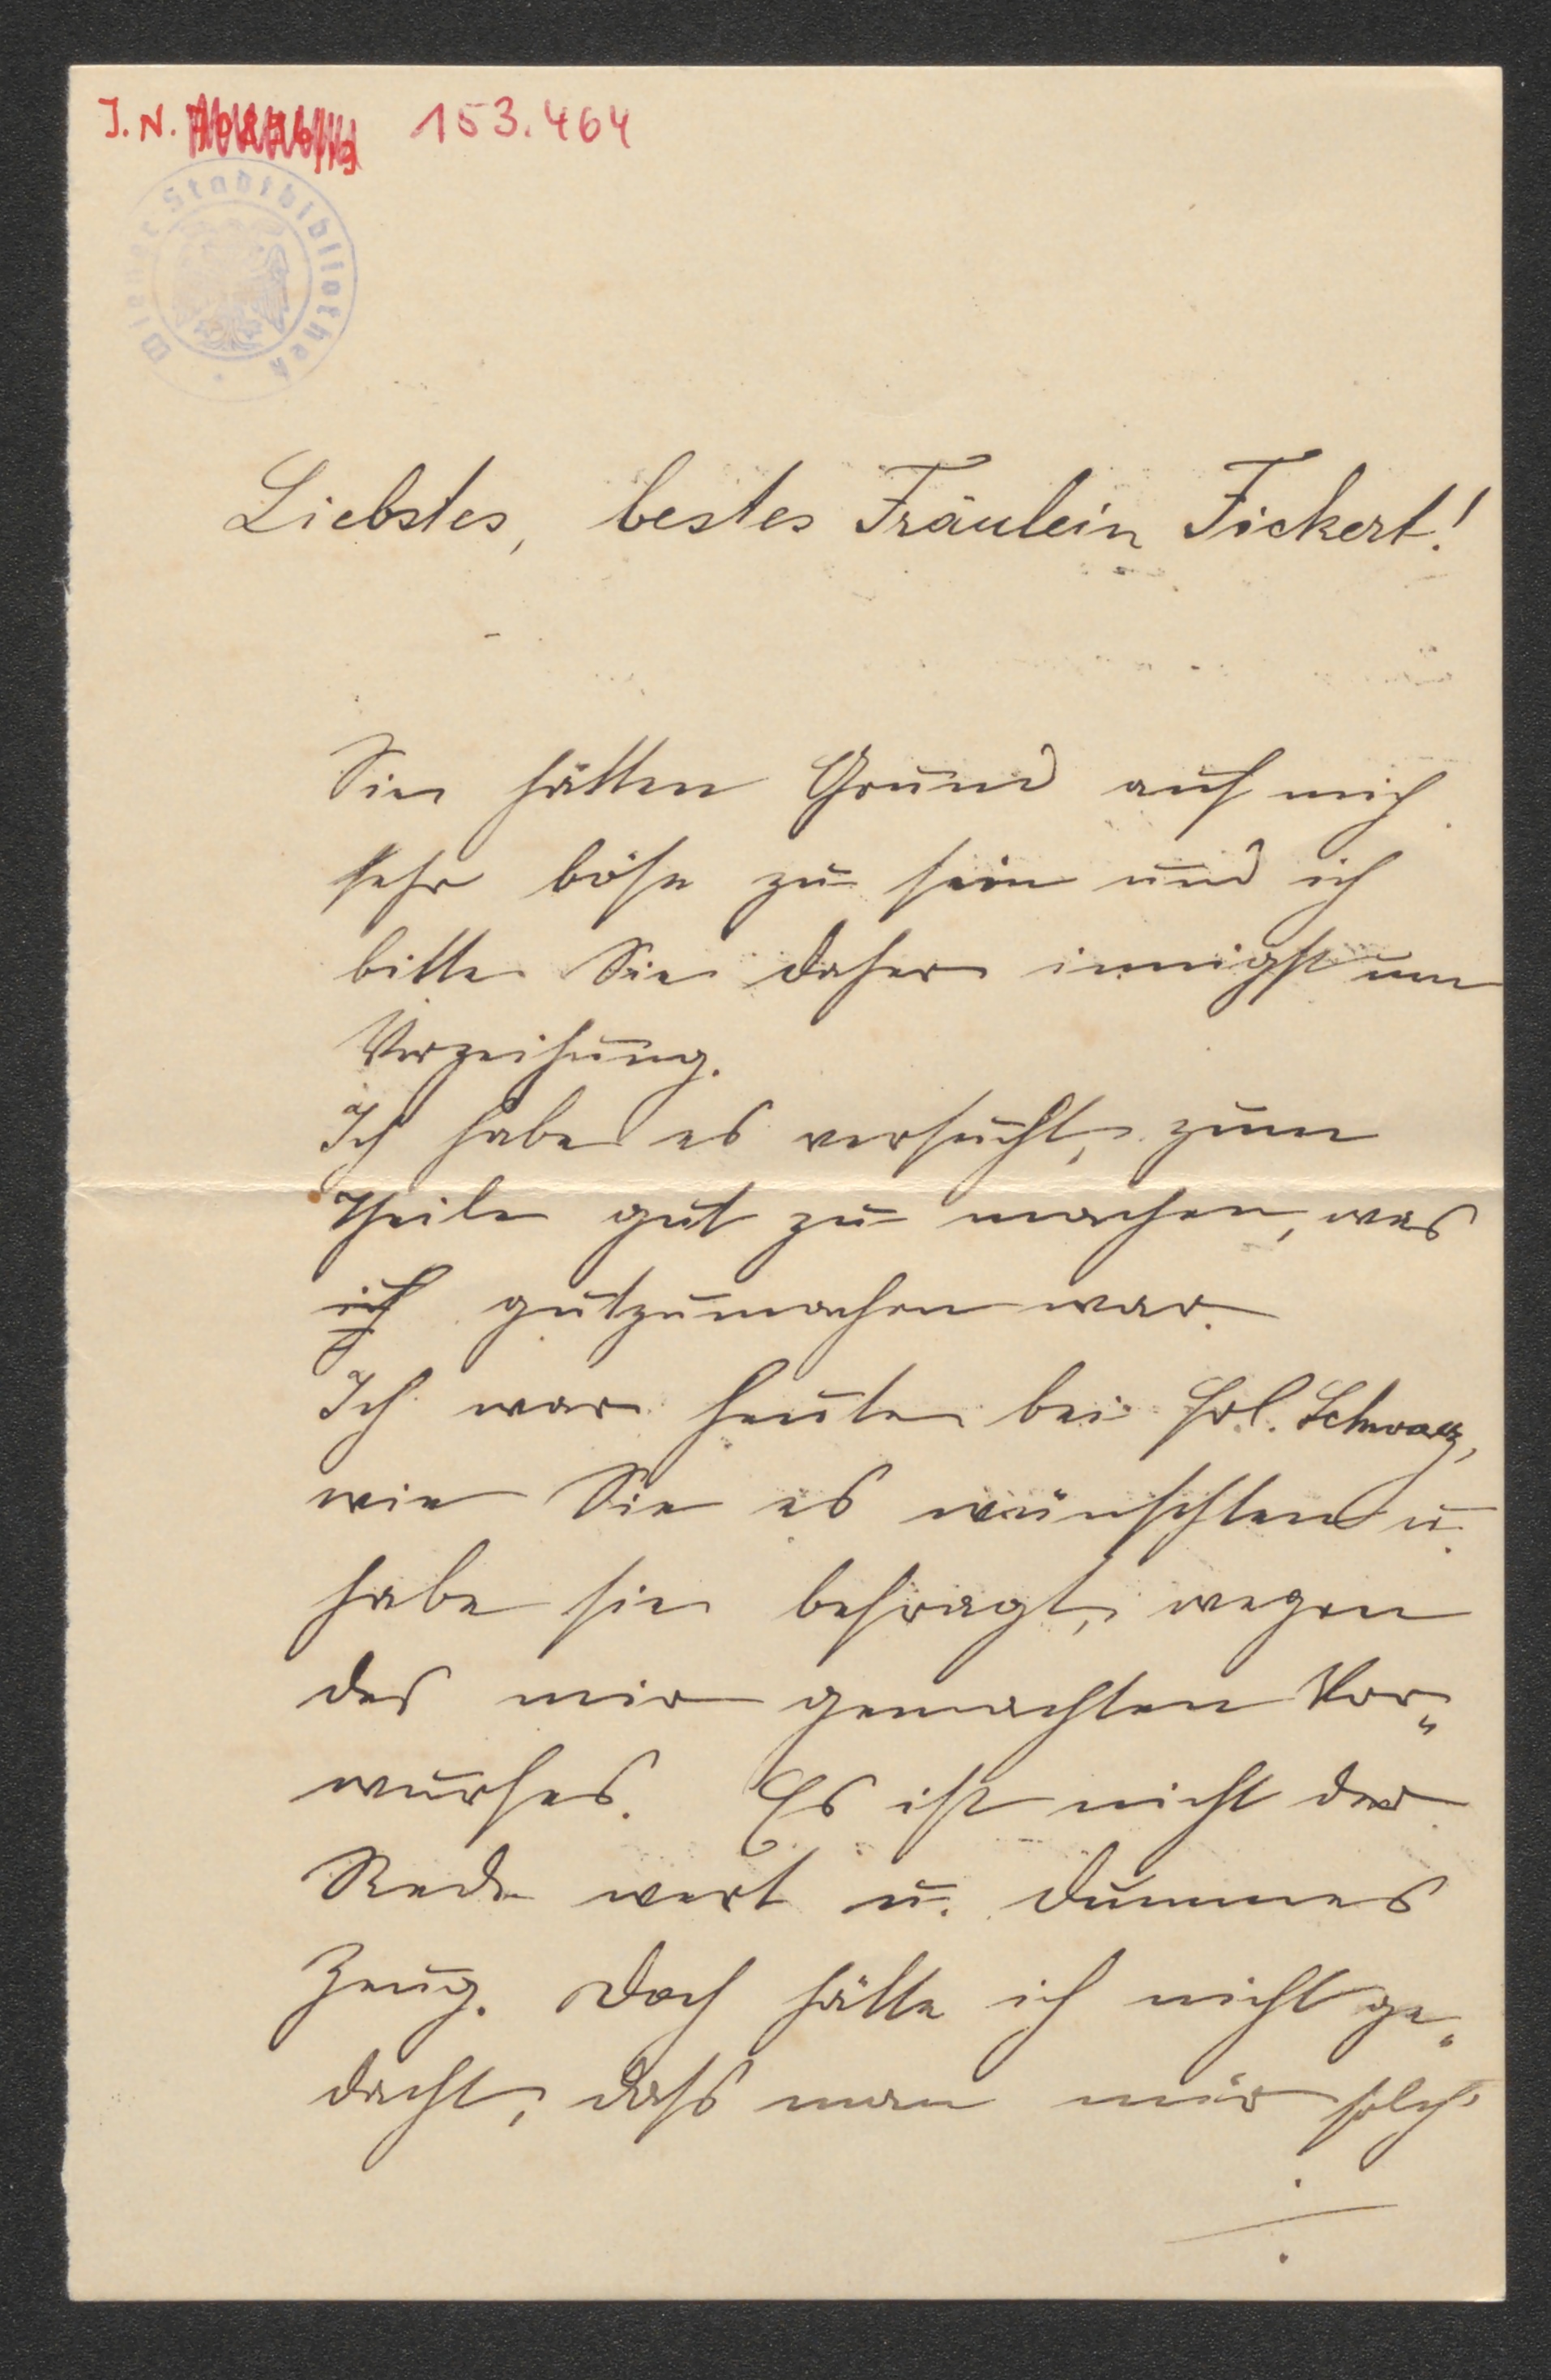 J. N. 153.464
Wiener Stadtbibliothek
Liebstes, bestes Fräulein Fickert!
Sie hätten Grund auf mich
sehr böse zu sein und ich
bitte Sie daher innigst um
Verzeihung.
Ich habe es versucht, zum
Theile gut zu machen, was
ich gutzumachen war.
Ich war heute bei Frl. Schwarz,
wie Sie es wünschten u.
habe sie befragt, wegen
des mir gemachten Vor„
wurfes. Es ist nicht der
Rede wert u. dummes
Zeug. Doch hätte ich nicht ge„
dacht, dass man mir solch'
./.